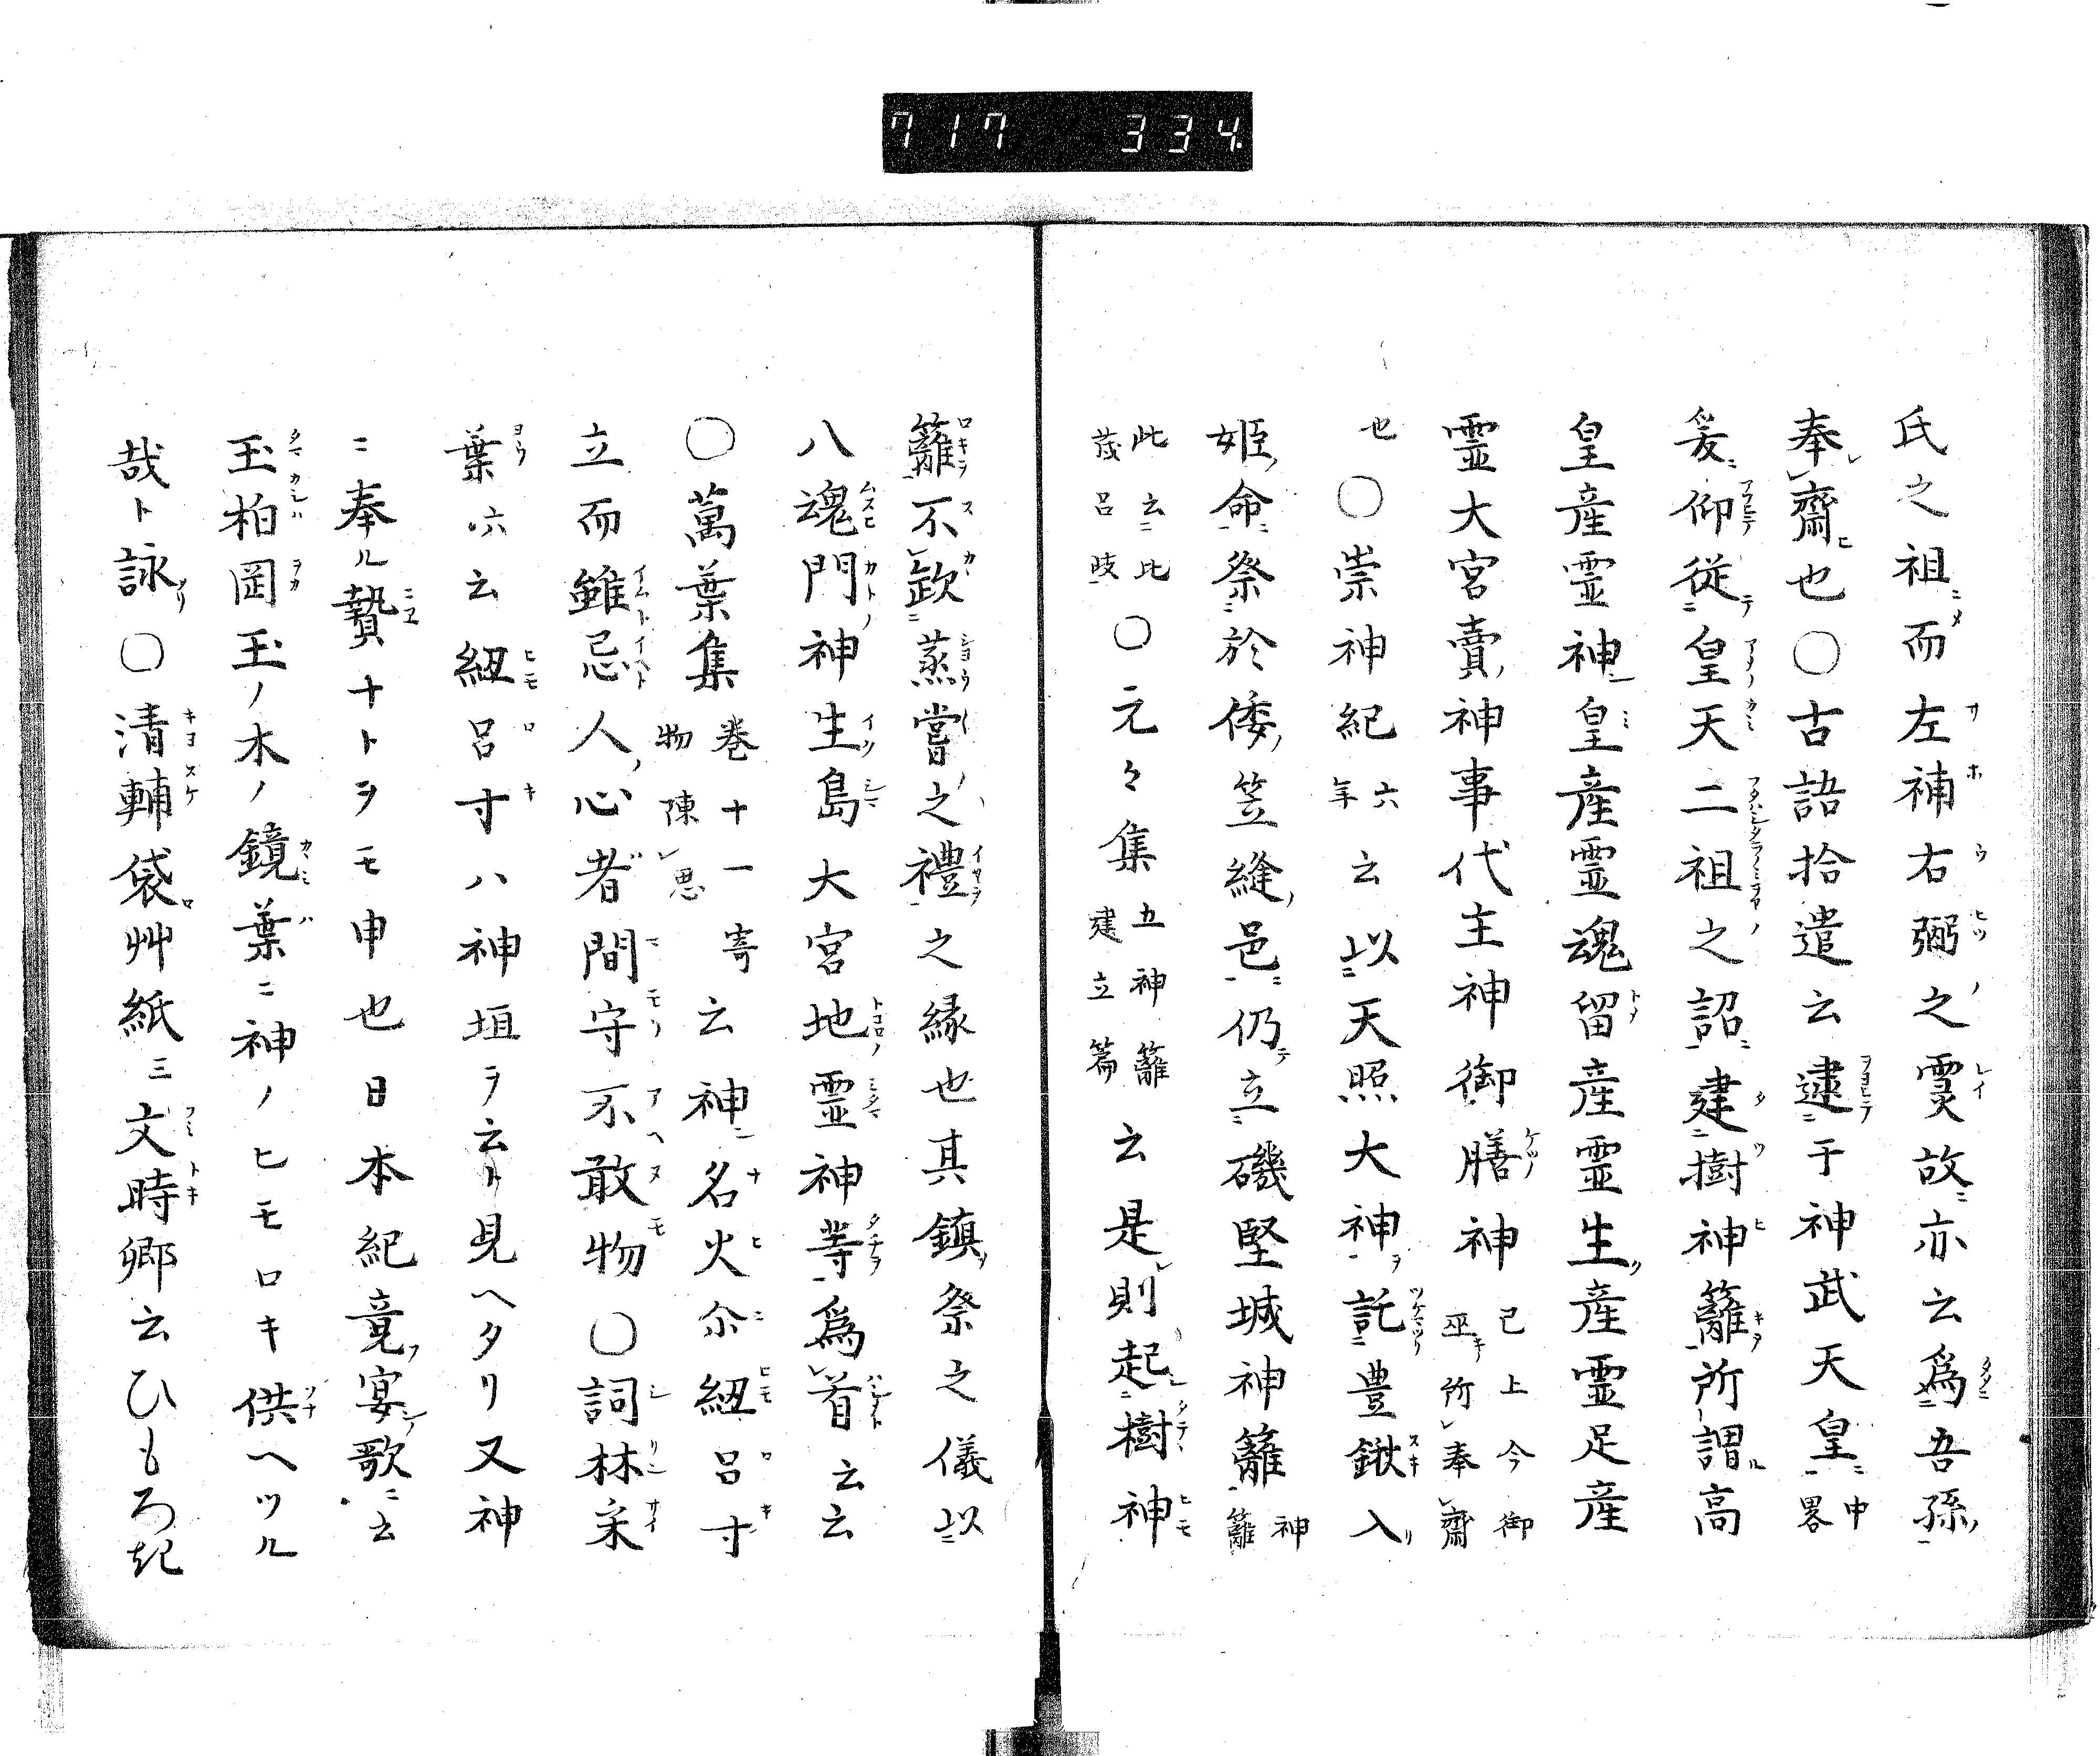 717 334
氏之祖而左補右弼之霊故亦云爲吾孫
奉齋也〇古語拾遺云逮于神武天皇中畧
爰仰從皇天二祖之詔建樹神籬所謂高
皇産霊神皇産霊魂留産霊生産霊足産
霊大宮賣神事代主神御膳神已上今御巫所奉齋
也〇崇神紀六年云以天照大神託豊鍬入
姫命祭於倭笠縫邑仍立磯堅城神籬神籬
此云比茂呂岐〇元々集五神籬建立篇云是則起樹神
籬不欽蒸嘗之禮之縁也其鎮祭之儀以
八魂門神生島大宮地霊神等爲首云云
〇萬葉集巻十一寄物陳思云神名火尒紐呂寸
立而雖忌人心者間守不敢物〇詞林采
葉六云紐呂寸ハ神垣ヲ云ト見ヘタリ又神
ニ奉ル贄ナトヲモ申也日本紀竟宴歌ニ云
玉柏岡玉ノ木ノ鏡葉ニ神ノヒモロキ供ヘツル
哉ト詠〇清輔袋艸紙三文時卿云ひもろ起